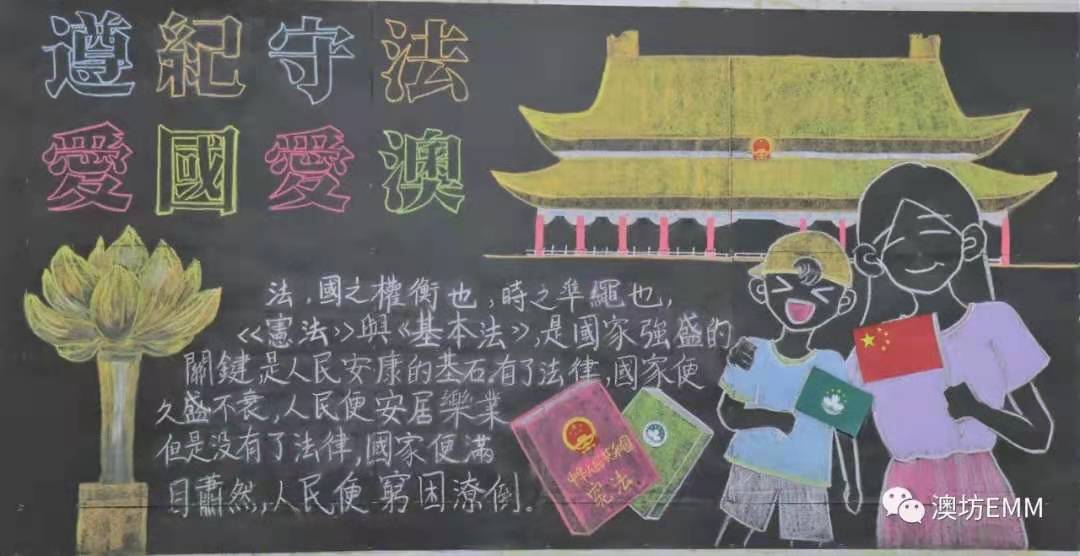 遵紀守法
愛國愛澳
法，國之權衡也，時之準繩也，
《憲法》與《基本法》，是國家強盛的
關鍵，是人民安康的基石。有了法律，國家便
久盛不衰，人民便安居樂業
但是没有了法律，國家便滿
目蕭然，人民便窮困潦倒。
中华人民共和国
宪法
澳坊EMM